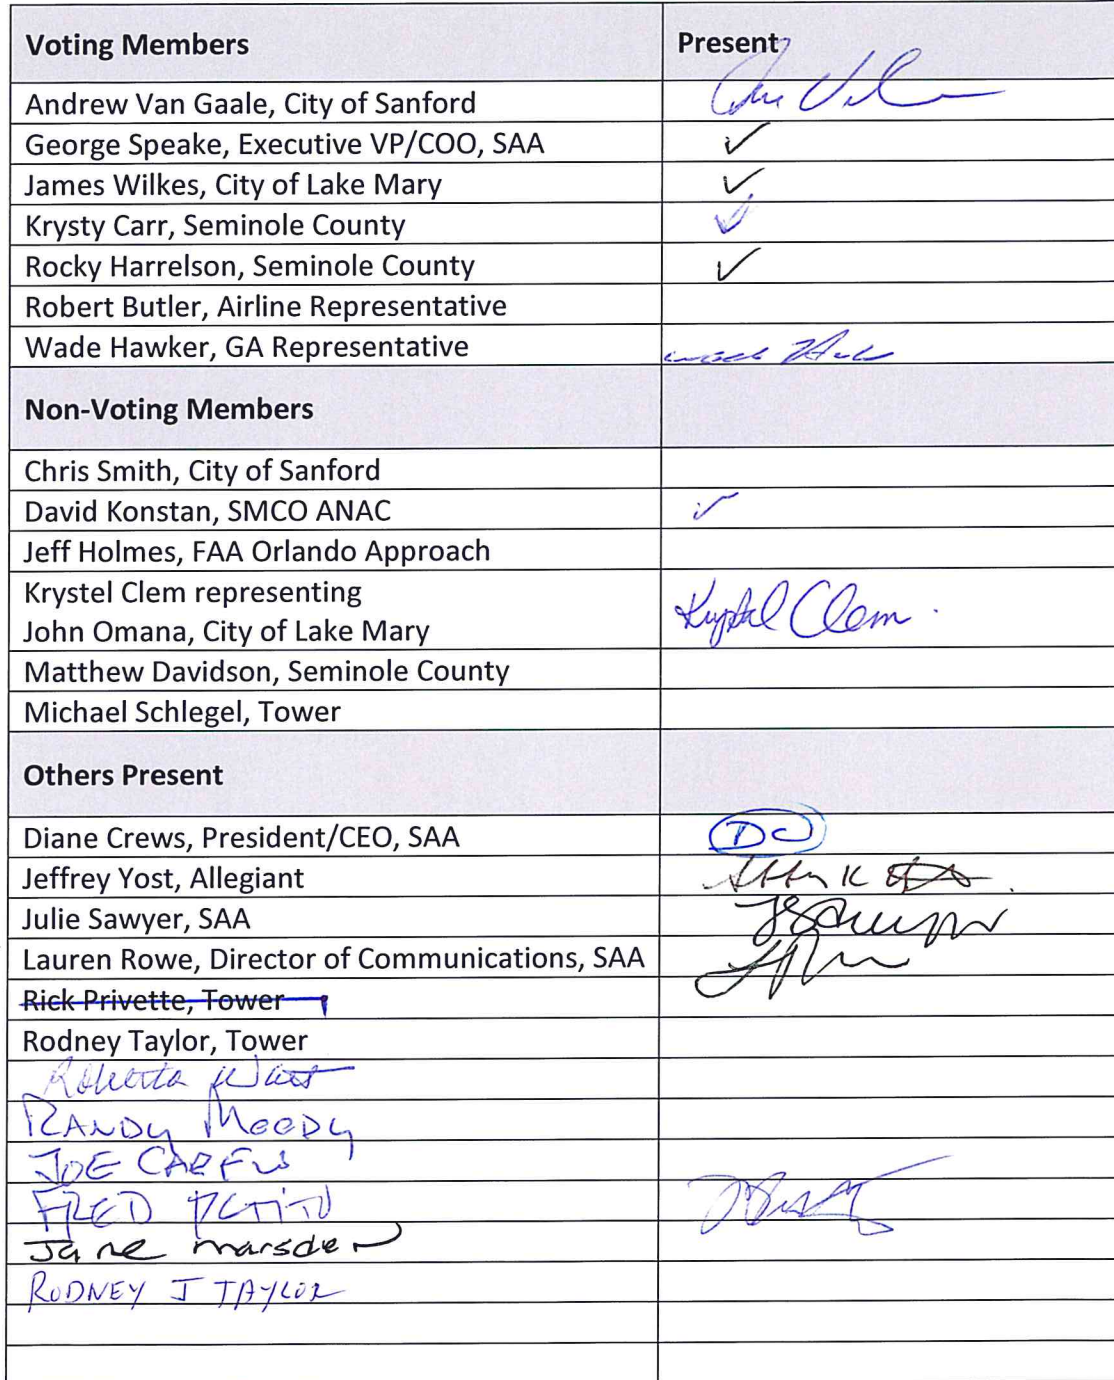 Voting Members Present
Andrew Van Gaale, City of Sanford
George Speake, Executive VP/COO, SAA
James Wilkes, City of Lake Mary
Krysty Carr, Seminole County
Rocky Harrelson, Seminole County
Robert Butler, Airline Representative
Wade Hawker, GA Representative
Non-Voting Members
Chris Smith, City of Sanford
David Konstan, SMCO ANAC
Jeff Holmes, FAA Orlando Approach
Krystel Clem representing
John Omana, City of Lake Mary Krystal Clem
Matthew Davidson, Seminole County
Michael Schlegel, Tower
Others Present
Diane Crews, President/CEO, SAA DC
Jeffrey Yost, Allegiant
Julie Sawyer, SAA JSawyer
Lauren Rowe, Director of Communications, SAA
Rick Privette, Tower
Rodney Taylor, Tower
Roberta
RANDY MOODY
JOE
FRED
Jane marsden
RODNEY J TAYLOR